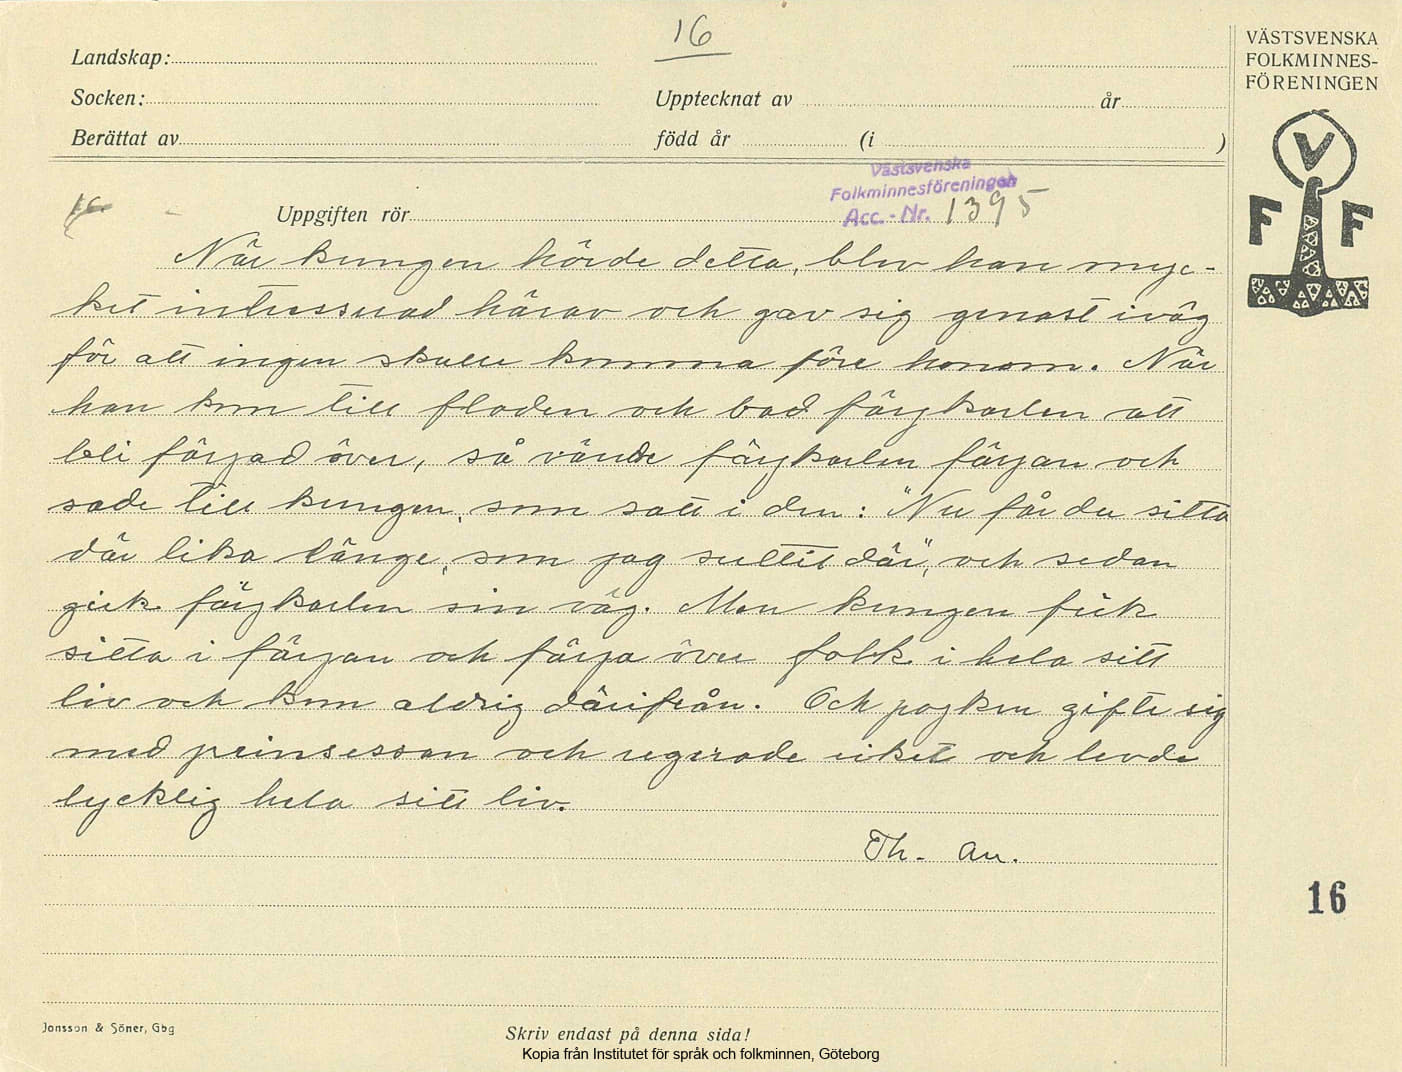 16
Landskap:
Socken:
Upptecknat av år
Berättat av
född år (i )
VÄSTSVENSKA
FOLKMINNES-
FÖRENINGEN
V
F F
Västsvenska
Folkminnesföreningen
Acc.-Nr. 1395
16.
Uppgiften rör
När kungen hörde detta, blev han myc-
ket intresserad härav och gav sig genast iväg
för att ingen skulle komma före honom. När
han kom till floden och bad färjkarlen att
bli färjad över, så vände färjkarlen färjan och
sade till kungen, som satt i den: "Nu får du sitta
där lika länge, som jag suttit där", och sedan
gick färjkarlen sin väg. Men kungen fick
sitta i färjan och färja över folk i hela sitt
liv och kom aldrig därifrån. Och pojken gifte sig
med prinsessan och regerade riket och levde
lycklig hela sitt liv.
Th. An.
16
Jonsson & Söner, Gbg
Skriv endast på denna sida!
Kopia från Institutet för språk och folkminnen, Göteborg